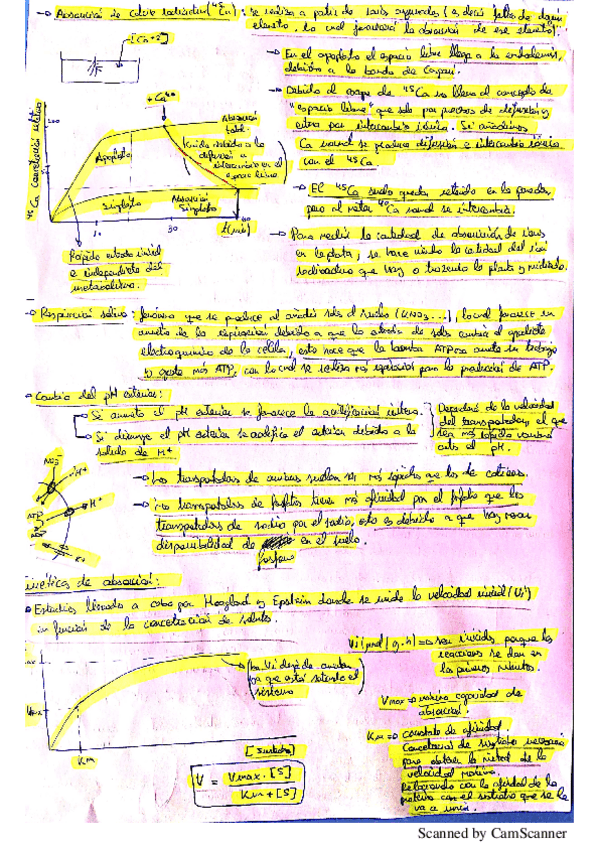 Absorción de Calcio radiactivo (⁴⁵Ca): se realiza a partir de
elemento, lo cual favorecerá la absorción de ese elemento).
[Ca+2]
En el apoplasto el espacio libre llega a la endodermis,
debido a la banda de Caspari.
Debido al escape de ⁴⁵Ca se llega al concepto de
"espacio libre" que solo por procesos de difusión y
entra por intercambio iónico. Si añadimos
Ca normal se produce difusión e intercambio iónico
con el ⁴⁵Ca.
El ⁴⁵Ca suele quedar retenido en la pared,
pero al meter ⁴⁰Ca normal se intercambia.
Para medir la cantidad de absorción de iones
en la planta, se hace viendo la cantidad del ion
radiactivo que hay
+Ca⁴⁰
Absorción
total
Apoplasto
debido a la
difusión e
intercambio en el
espacio libre
Simplasto
Absorción
Simplasto
30
t(min)
Rápido inicial
e independiente del
metabolismo.
Respiración salina: fenómeno que se produce al añadir sales al suelo (KNO3...), lo cual favorece un
aumento de la respiración debido a que la entrada de sales cambia el gradiente
electroquímico de la célula, esto hace que la bomba ATPasa aumente su trabajo
y gaste más ATP, con lo cual se realiza más respiración para la producción de ATP.
Cambio del pH exterior:
Si aumenta el pH exterior se favorece la acidificación
Si disminuye el pH exterior se acidifica el exterior debido a la
salida de H+
Dependerá de la velocidad
del transportador, el que
sea más rápido variará
antes el pH.
NO3-
H+
H+
ATP
Los transportadores de aniones suelen ser más rápidos que los de cationes.
Los transportadores de fosfatos tienen más afinidad por el fosfato que los
transportadores de sodio por el sodio, esto es debido a que hay menor
disponibilidad de en el suelo.
fosforo
Cinética de absorción:
Estudios llevados a cabo por Hoagland y Epstein donde se mide la velocidad inicial (Vi)
en función de la concentración de soluto.
ya que está saturado el
sistema
Km
[Sustrato]
V = Vmax · [S]
Km + [S]
porque las
reacciones se dan en
los primeros minutos.
Vmax => máxima capacidad de
absorción.
Km => constante de afinidad
Concentración de sustrato necesaria
para obtener la mitad de la
velocidad máxima.
Relacionado con la afinidad de la
proteína con el sustrato que se le
va a unir.
Scanned by CamScanner